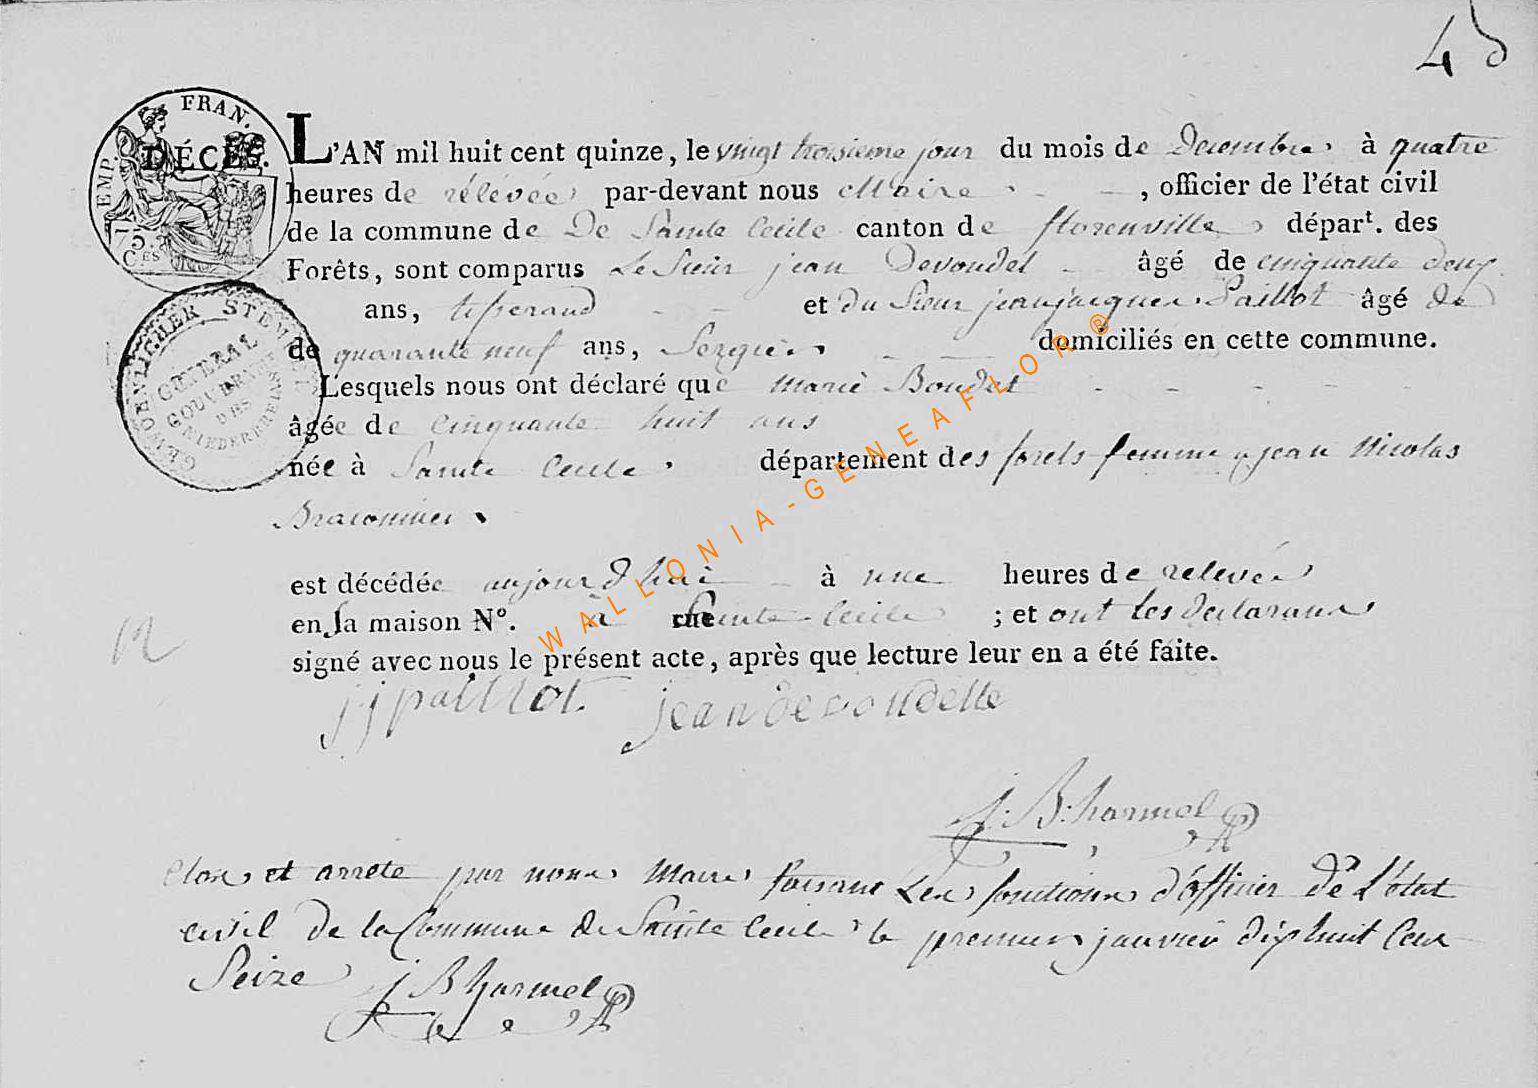 4
EMP. FRAN.
DÉCÈS.
75.
C.ES
GEWOENLICHER STEMPEL
GENERAL
GOUVERNEMENT
DES
NIEDERRHEINS
L'AN mil huit cent quinze, le vingt troisieme jour du mois de Decembre à quatre
heures de rélévée par-devant nous Maire, officier de l'état civil
de la commune de De Sainte Cecile canton de florenville départ. des
Forêts, sont comparus Le Sieur jean Devoudel âgé de cinquante deux
ans, tisserand et du Sieur jean jacques Paillot âgé de
de quarante neuf ans, domiciliés en cette commune.
Lesquels nous ont déclaré que Marie Boudet
âgée de cinquante huit ans
née à Sainte Cecile département des forets femme a jean Nicolas
Braconnier
est décédée aujourd'hui à une heures de relevée
en Sa maison N°. à rue Sainte Cecile ; et ont les declarans
signé avec nous le présent acte, après que lecture leur en a été faite.
12
jjpaillot. jean devoudelle
J: B: harmel
Clos et arrêté par nous Maire faisant Les fonctions d'officier De L'état
civil De la Commune de Sainte Cecile le premier janvier dix huit Cent
Seize J B harmel
WALLONIA-GENEAFLOR®